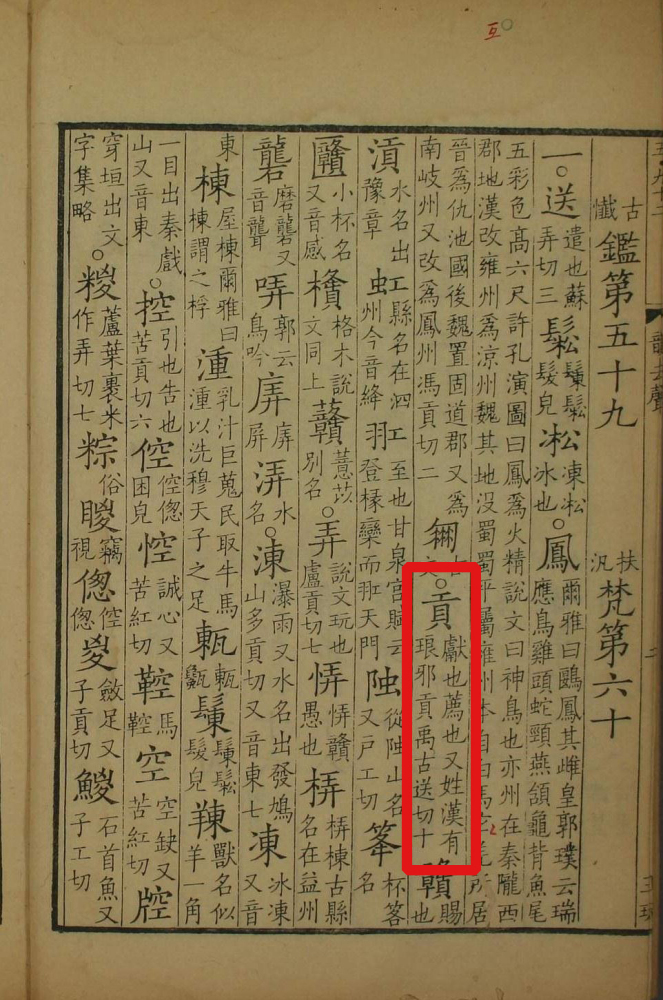 古懺鑑第五十九 扶汎梵第六十
一。送遣也蘇弄切三鬆鬤鬆髮皃凇凍凇冰也。鳳爾雅曰鶠鳳其雌皇郭璞云瑞應鳥雞頭蛇頸燕頷龜背魚尾
五彩色高六尺許孔演圖曰鳳爲火精說文曰神鳥也亦州在秦隴西郡地漢改雍州爲涼州魏其地没蜀蜀平屬雍州本自白馬氐羌所居
晉爲仇池國後魏置固道郡又爲南岐州又改爲鳳州馮貢切二 古文。貢獻也薦也又姓漢有琅邪貢禹古送切十贛賜也
水名出豫章虹縣名在泗州今音絳羾至也甘泉宮賦云登椽欒而羾天門 從 山名又戶工切 杯笿名
小杯名又音感 格木說文同上 薏苡別名。弄說文玩也盧貢切七㤖㤖贛愚也梇梇棟古縣名在益州
礱磨礱又音聾哢郭云鳥吟㢅㢅屏㳥水名。涷瀑雨又水名出發鳩山多貢切又音東七凍冰凍又音
東棟屋棟爾雅曰棟謂之桴湩乳汁巨蒐民取牛馬湩以洗穆天子之足 鬆髮皃 獸名似羊一角
一目出秦戲山又音東。控引也告也苦貢切六倥倥傯困皃悾誠心又苦紅切鞚馬鞚空空缺又苦紅切
穿垣出文字集略。糉蘆葉裹米作弄切七粽俗 竊視傯倥傯㚇斂足又子貢切鯼石首魚又子工切